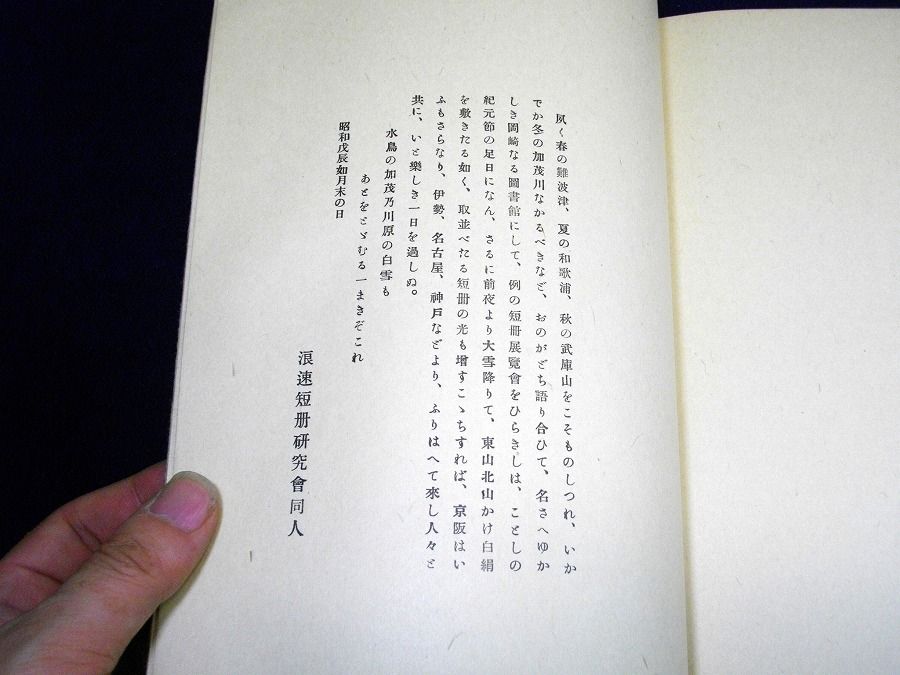 夙く春の難波津、夏の和歌浦、秋の武庫山をこそものしつれ、いか
でか冬の加茂川なかるべきなど、おのがどち語り合ひて、名さへゆか
しき岡崎なる圖書館にして、例の短册展覽會をひらきしは、ことしの
紀元節の足日になん、さるに前夜より大雪降りて、東山北山かけ白絹
を敷きたる如く、取並べたる短册の光も增すこゝちすれば、京阪はい
ふもさらなり、伊勢、名古屋、神戸などより、ふりはへて來し人々と
共に、いと樂しき一日を過しぬ。
水鳥の加茂乃川原の白雪も
あとをとゞむる一まきぞこれ
昭和戊辰如月末の日
浪速短册研究會同人